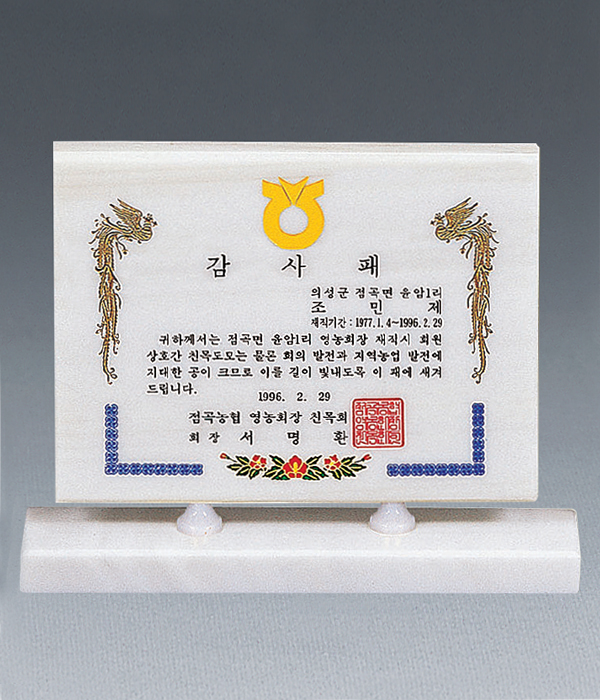 감 사 패
의성군 점곡면 윤암1리
조 민 제
재직기간 : 1977. 1. 4~1996. 2. 29
귀하께서는 점곡면 윤암1리 영농회장 재직시 회원
상호간 친목도모는 물론 회의 발전과 지역농업 발전에
지대한 공이 크므로 이를 길이 빛내도록 이 패에 새겨
드립니다.
1996. 2. 29
점곡농협 영농회장 친목회
회 장 서 명 환